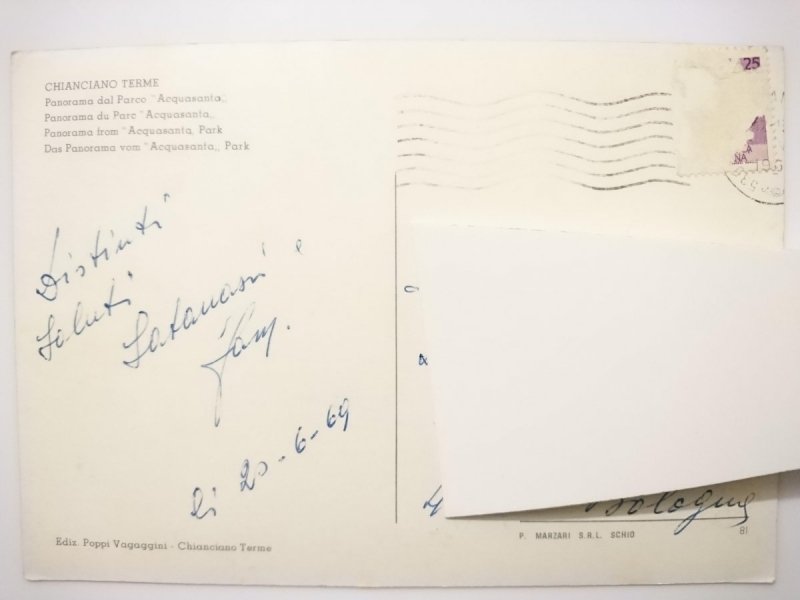 CHIANCIANO TERME
Panorama dal Parco "Acquasanta„
Panorama du Parc "Acquasanta„
Panorama from "Acquasanta„ Park
Das Panorama vom "Acquasanta„ Park
25
NA A
Distinti
Saluti
e
Fam.
li 20-6-69
Bologna
Ediz. Poppi Vagaggini - Chianciano Terme
P. MARZARI S.R.L. SCHIO
81